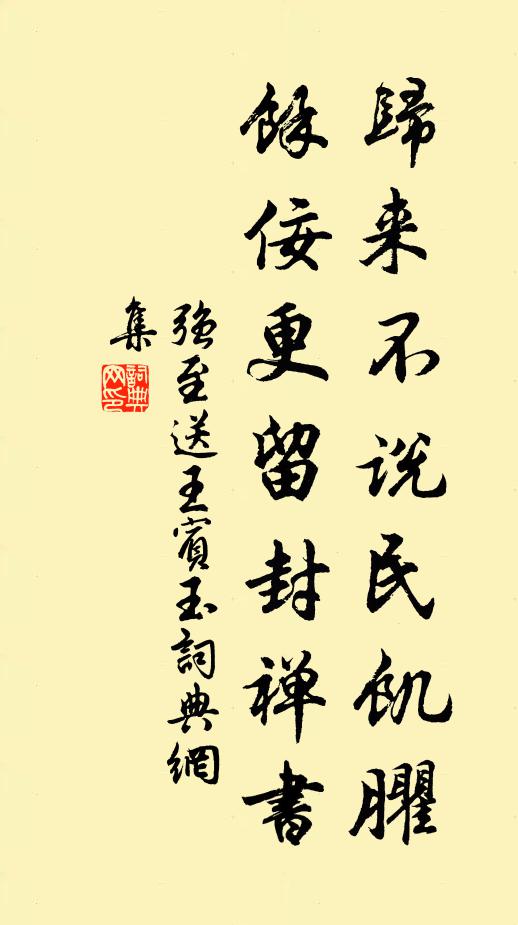 歸来不说民飢臞
餘佞更留封禅書
強至送王賓玉詞典網
集
詞典网印